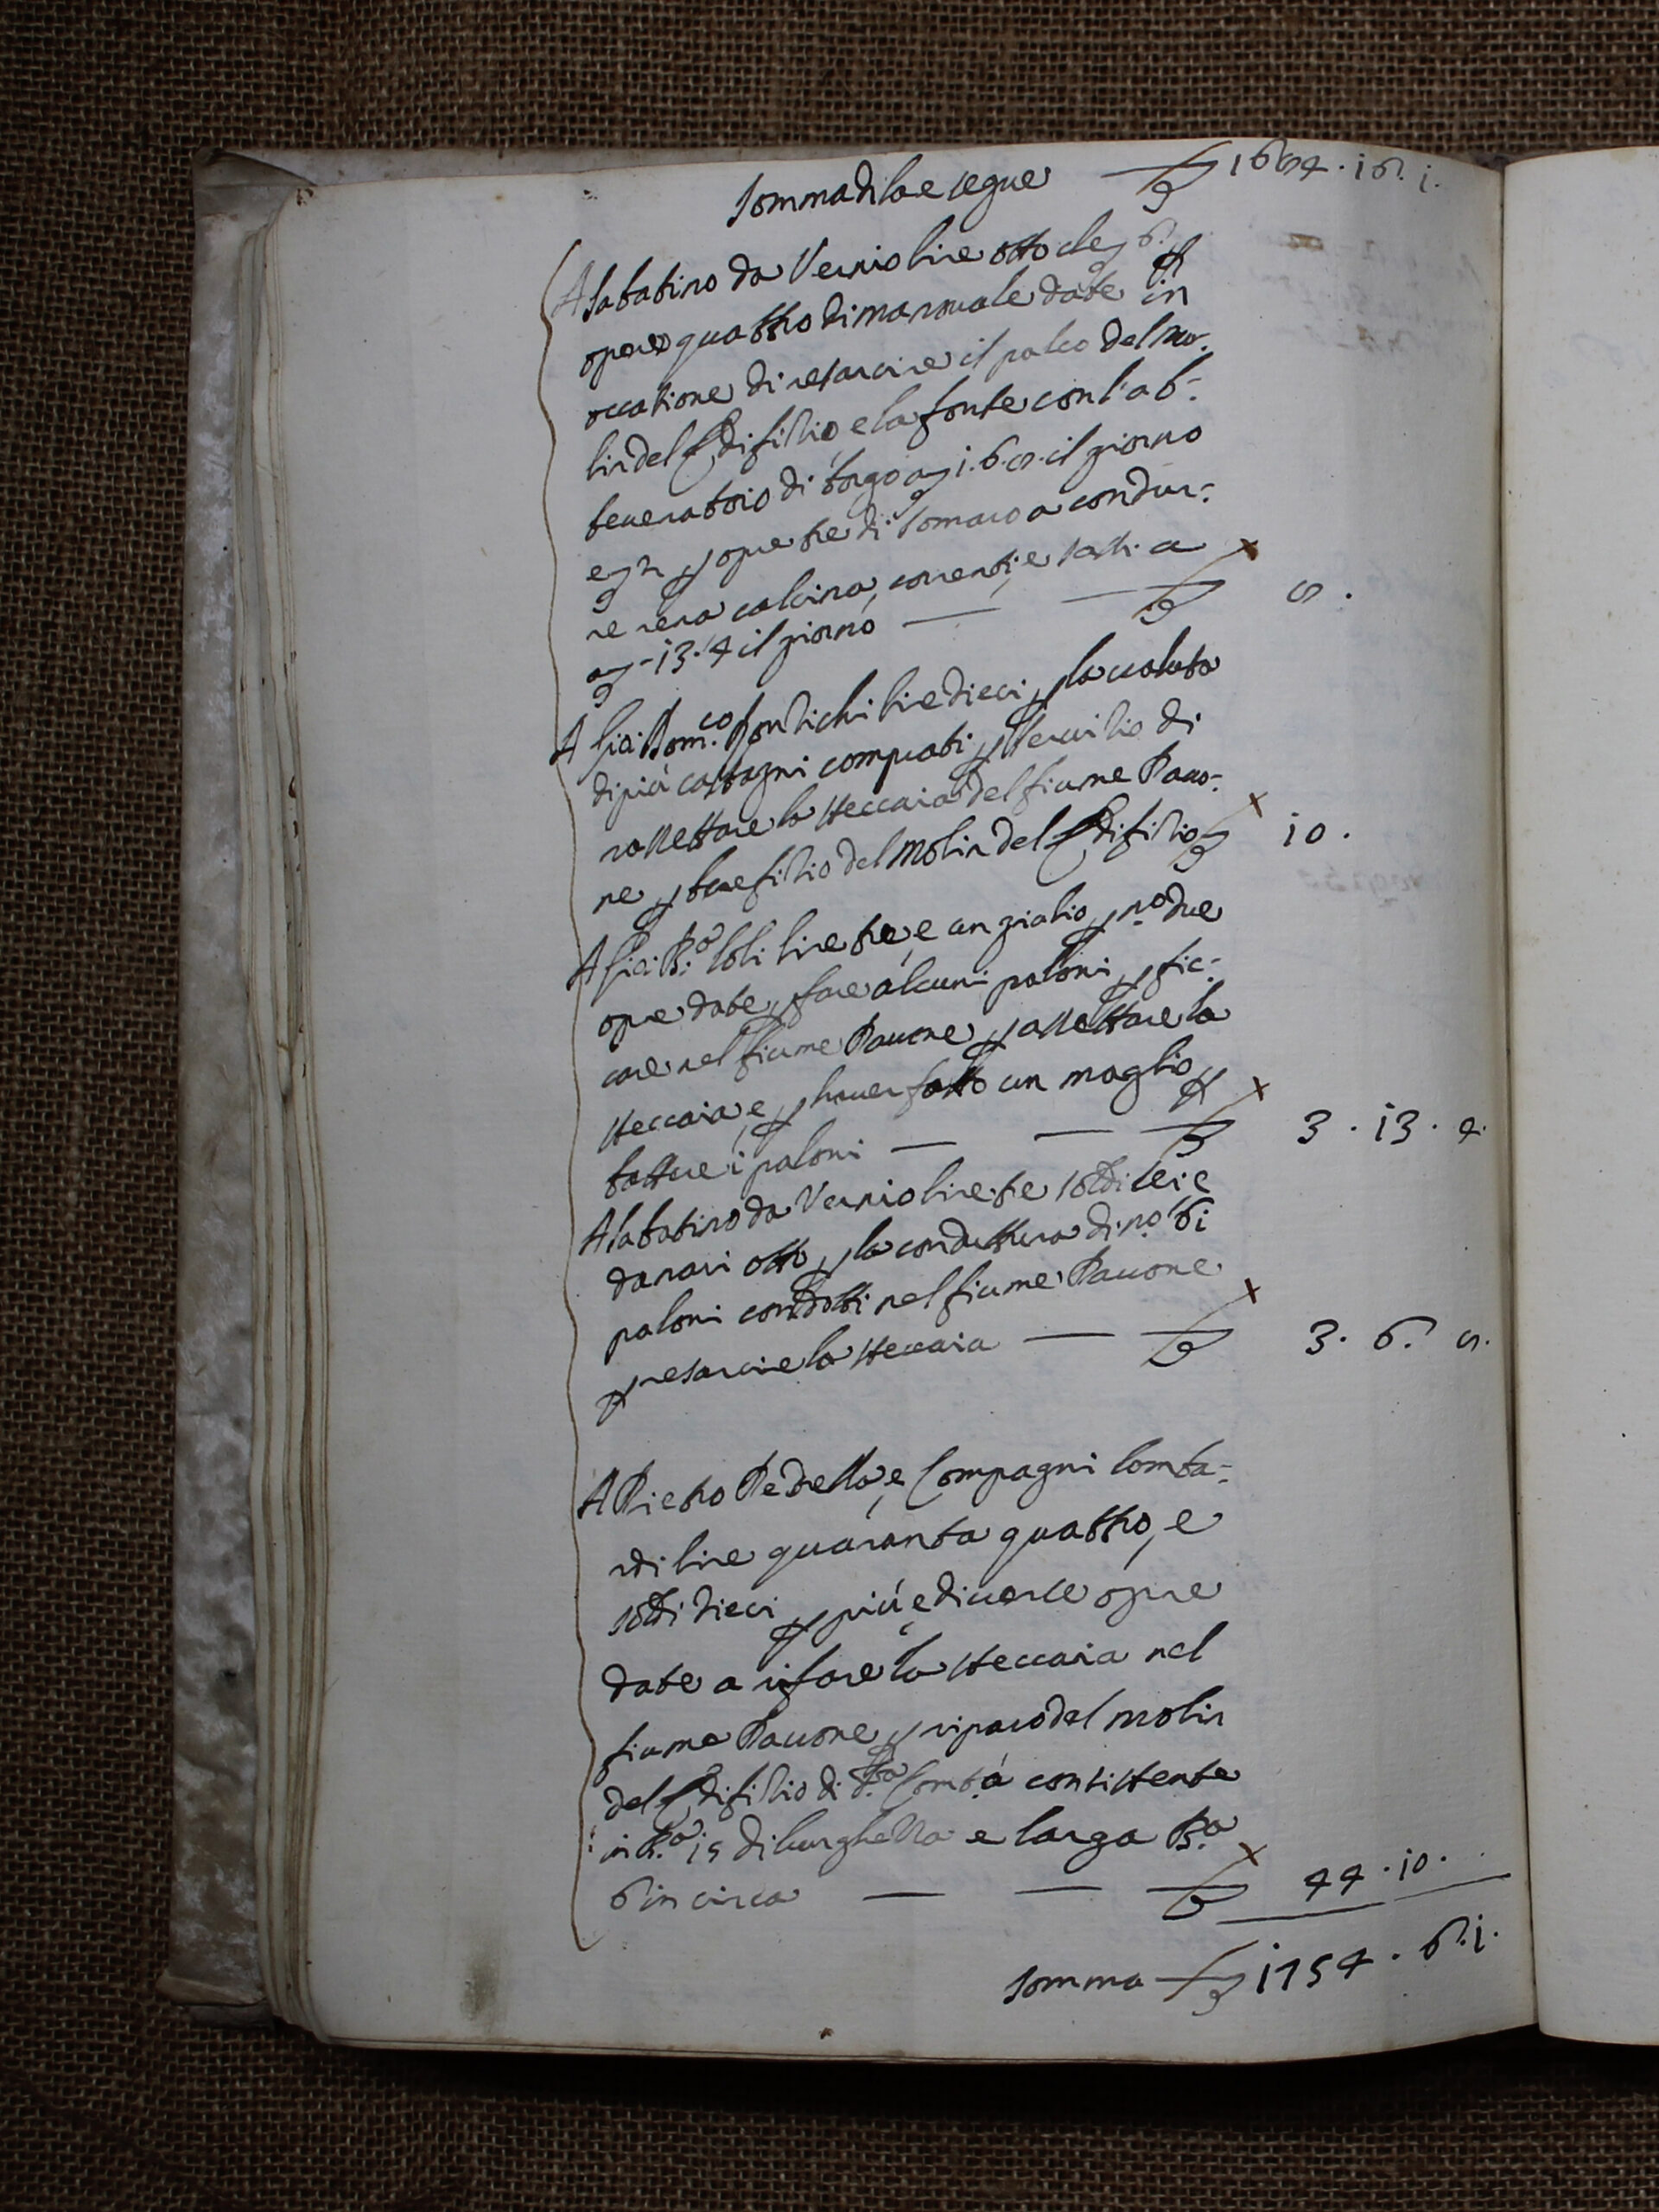 Somma di là e segue 1684 . 16 . 1 .
A Sabatino da Vernio lire otto
opere quattro di manovale date in
occasione di resarcire il palco del mo-
lin del Edifitio, e la fonte con l'ab-
beveratoio di borgo a 1 . 6 . 8 . il giorno
e opre tre di somaro a condur-
re rena calcina, correnti, e sassi a
a - 13 . 4 il giorno 8 .
A Gio: Dom.co Pontichi lire dieci p la valuta
di più castagni comprati p servitio di
rassettare la steccaia del fiume Pavo-
ne p benefitio del molin del Edifitio 10 .
A Gio: lire tre, e un giulio p n.o due
opre date p fare alcuni paloni p fic-
care nel fiume Pavone p assettare la
steccaia, e p haver fatto un maglio p
battere i paloni 3 . 13 . 4 .
A Sabatino da Vernio lire tre soldi sei e
danari otto p la conduttura di n.o 61
paloni condotti nel fiume Pavone
p resarcire la steccaia 3 . 6 . 8 .
A Pietro Pedrella, e Compagni lomba-
rdi lire quaranta quattro, e
soldi dieci p più, e diverse opre
date a rifare la steccaia nel
fiume Pavone p riparo del molin
del Edifitio di d.ta Comtà consistente
in B.a 15 di lunghezza e larga B.a
6 in circa 44 . 10 .
Somma 1754 . 6 . 1 .